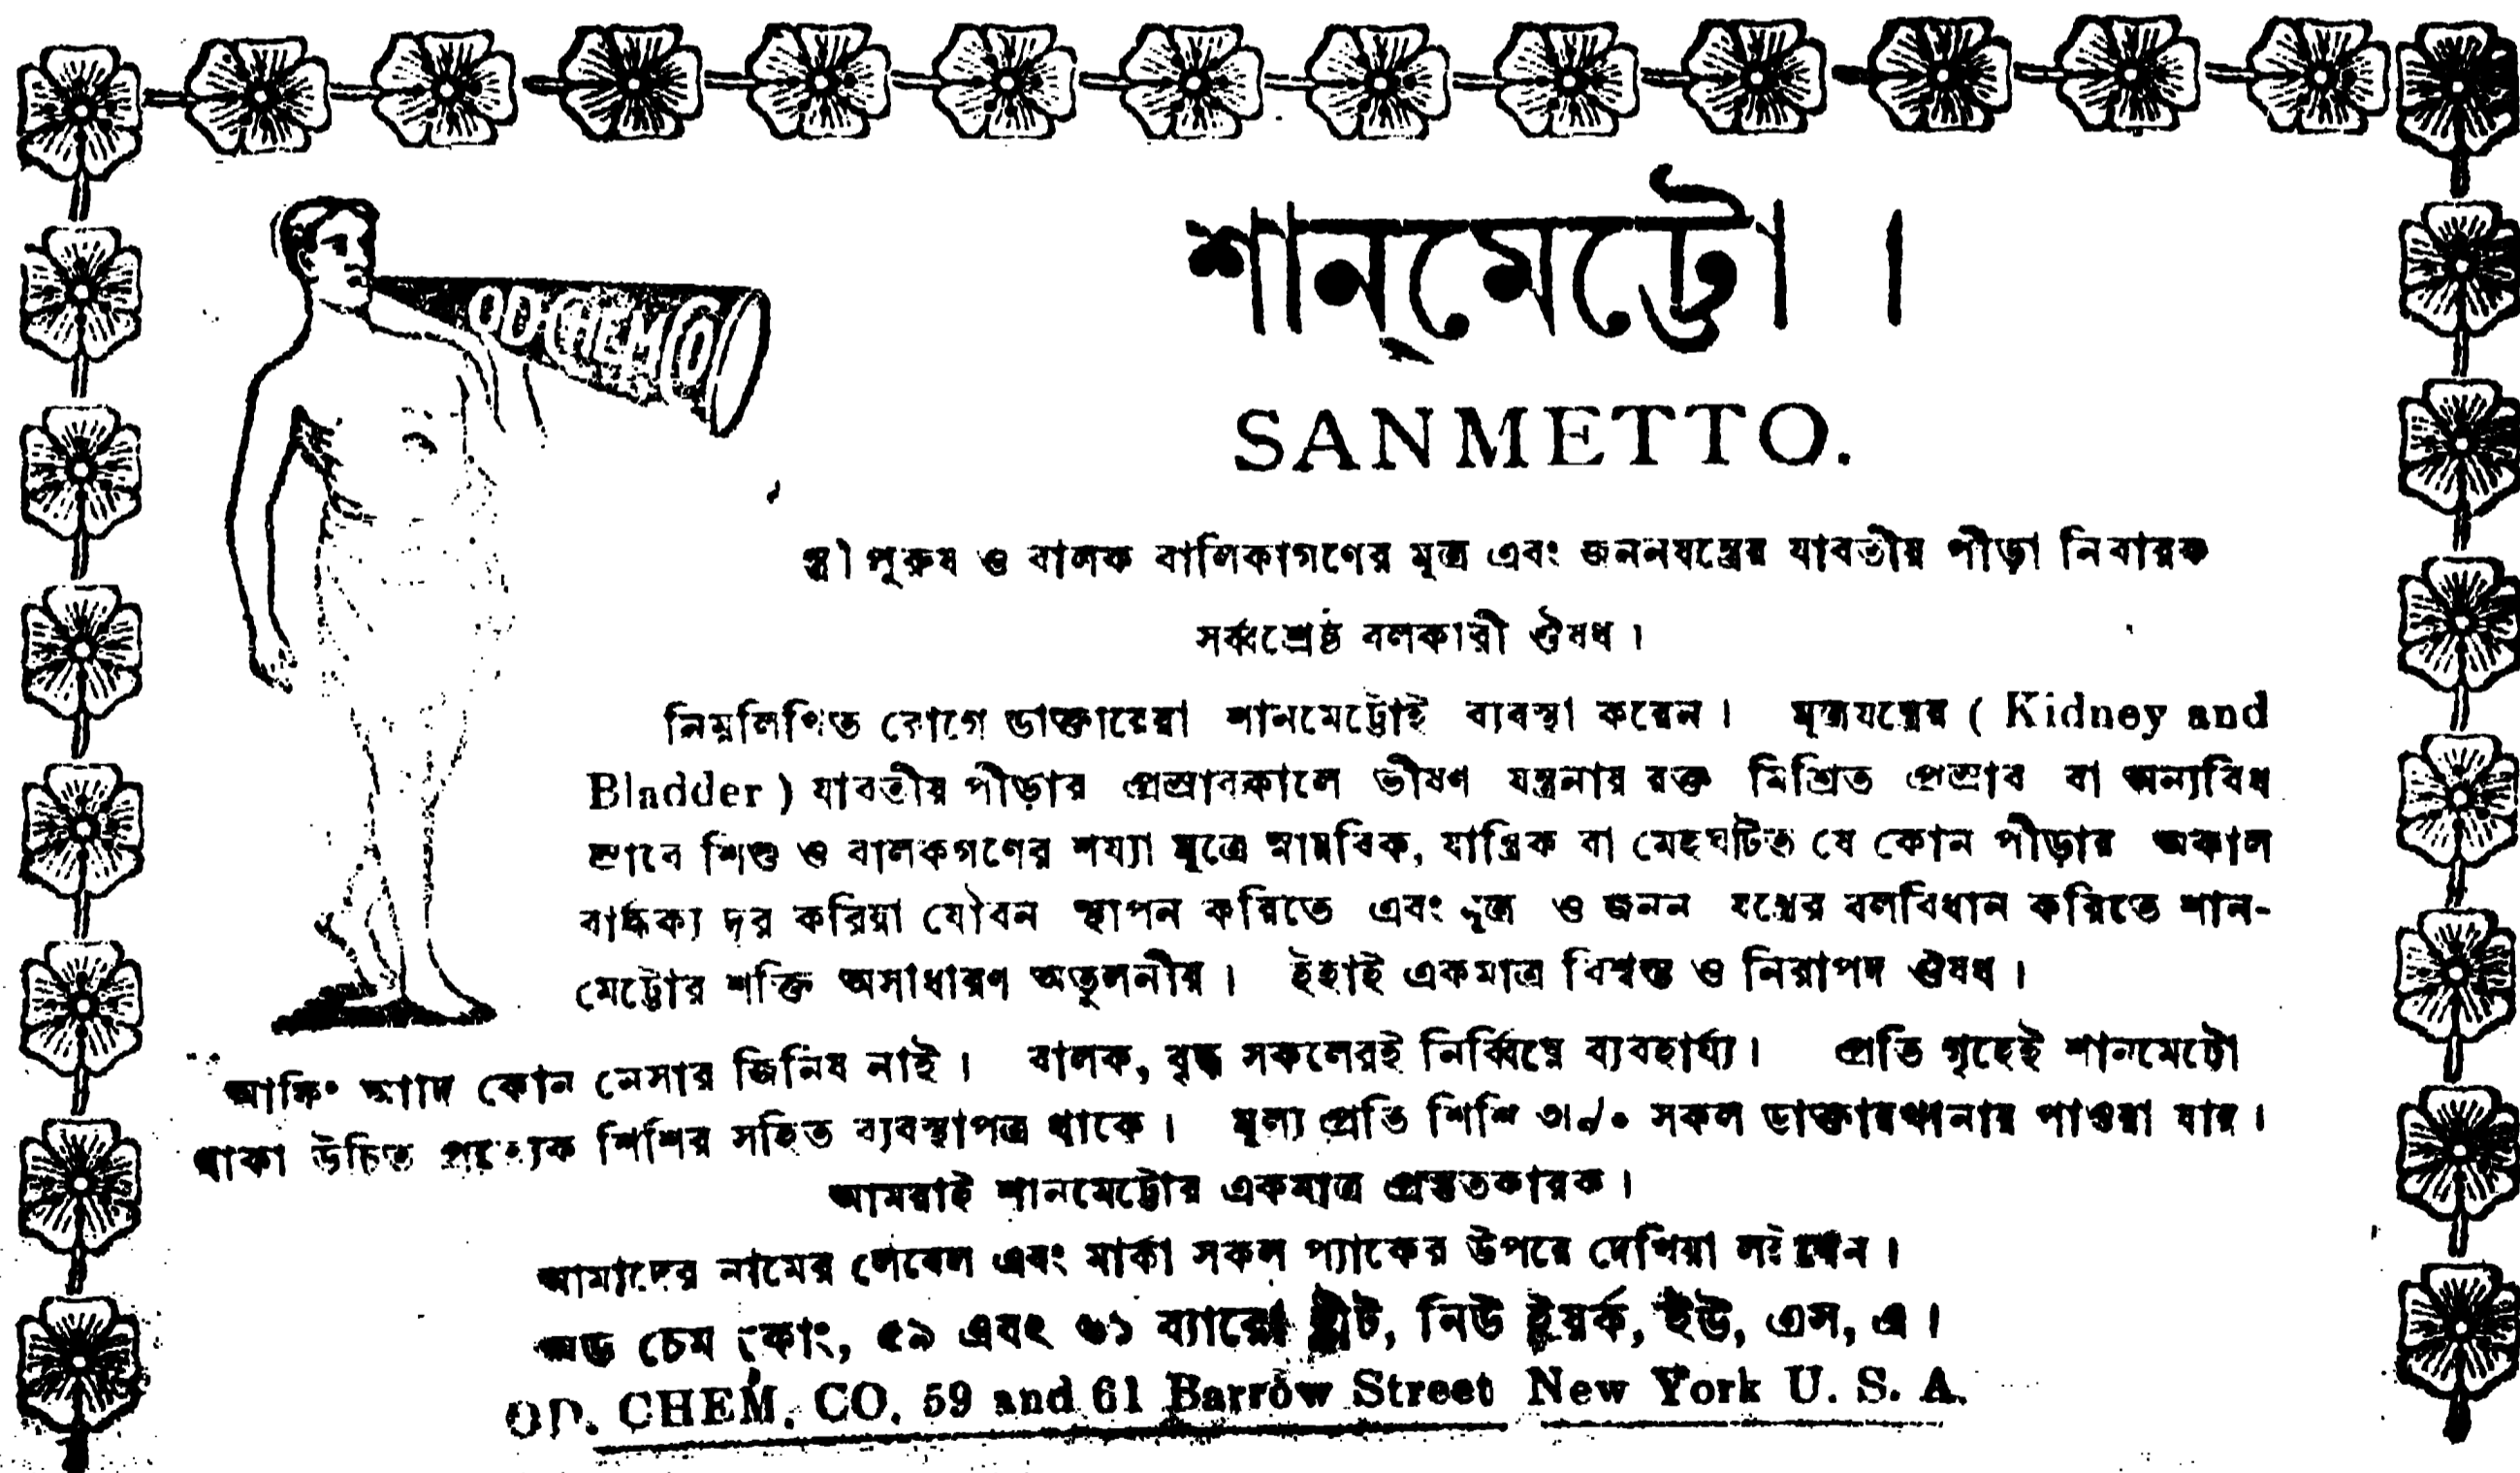 OD CHEM CO
শান্‌মেট্টো ।
SANMETTO.
স্ত্রী পুরুষ ও বালক বালিকাগণের মূত্র এবং জননযন্ত্রের যাবতীয় পীড়া নিবারক
সর্ব্বশ্রেষ্ঠ বলকারী ঔষধ ।
নিম্নলিখিত রোগে ডাক্তারেরা শানমেট্টোই ব্যবস্থা করেন । মূত্রযন্ত্রের ( Kidney and
Bladder ) যাবতীয় পীড়ার প্রেস্রাবকালে ভীষণ যন্ত্রনায় রক্ত মিশ্রিত প্রেস্রাব বা অন্যবিধ
স্রাবে শিশু ও বালকগণের শয্যা মূত্রে স্নায়বিক, যান্ত্রিক বা মেহঘটিত যে কোন পীড়ার অকাল
বার্দ্ধক্য দূর করিয়া যৌবন স্থাপন করিতে এবং মূত্র ও জনন যন্ত্রের বলবিধান করিতে শান-
মেট্টোর শক্তি অসাধারণ অতুলনীয় । ইহাই একমাত্র বিশ্বস্ত ও নিরাপদ ঔষধ ।
আফিং আদি কোন নেসার জিনিষ নাই । বালক, বৃদ্ধ সকলেরই নির্ব্বিঘ্নে ব্যবহার্য্য । প্রেতি গৃহেই শানমেটো
থাকা উচিত প্রত্যেক শিশির সহিত ব্যবস্থাপত্র থাকে । মূল্য প্রেতি শিশি ৩৷৶৹ সকল ডাক্তারখানার পাওয়া যায় ।
আমরাই শানমেট্টোর একমাত্র প্রেস্তুতকারক ।
আমাদের নামের লেবেল এবং মার্কা সকল প্যাকের উপরে দেখিয়া লইবেন ।
অড চেম কোং, ৫৯ এবং ৬১ ব্যারো ষ্ট্রীট, নিউ ইয়র্ক, ইউ, এস, এ ।
OD. CHEM. CO. 59 and 61 Barrow Street New York U. S. A.